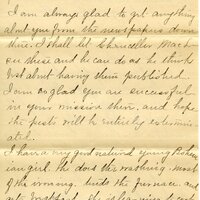 I am always glad to get anything
about you from the newspapers down
there. I shall let Chancellor Mach
see these and he can do as he thinks
best about having them published.
I am so glad you are successful
in your mission there, and hope
the pest will be entirely extermin
ated.
I have a very good natured young Bohem
ian girl. She does the washing most
of the ironing, tends the furnace, and